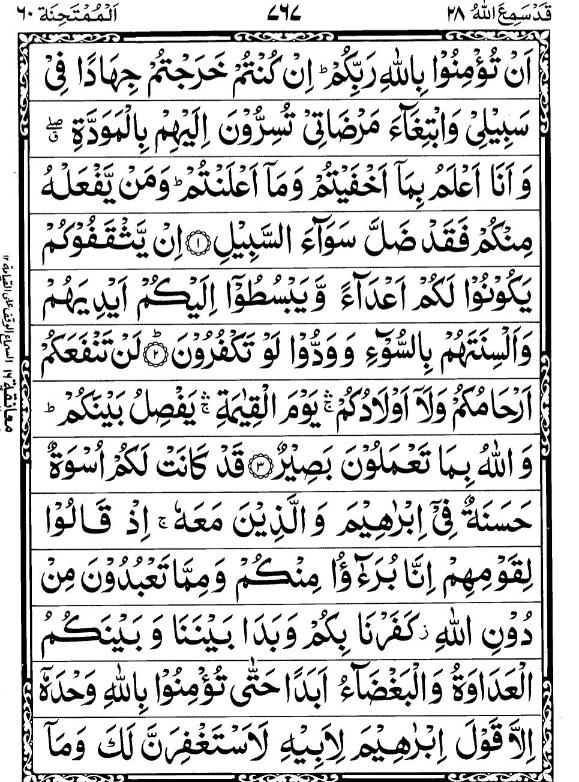 قَدْسَمِعَ اللّٰهُ ٢٨ ٧٦٧ اَلْمُمْتَحِنَة ٦٠
اَنْ تُؤْمِنُوْا بِاللّٰهِ رَبِّكُمْ ؕ اِنْ كُنْتُمْ خَرَجْتُمْ جِهَادًا فِیْ
سَبِیْلِیْ وَابْتِغَآءَ مَرْضَاتِیْ تُسِرُّوْنَ اِلَیْهِمْ بِالْمَوَدَّةِ ۖۗ
وَ اَنَا اَعْلَمُ بِمَاۤ اَخْفَیْتُمْ وَمَاۤ اَعْلَنْتُمْ ؕ وَمَنْ یَّفْعَلْهُ
مِنْكُمْ فَقَدْ ضَلَّ سَوَآءَ السَّبِیْلِ ۝١ اِنْ یَّثْقَفُوْكُمْ
یَكُوْنُوْا لَكُمْ اَعْدَآءً وَّیَبْسُطُوْۤا اِلَیْكُمْ اَیْدِیَهُمْ
وَاَلْسِنَتَهُمْ بِالسُّوْٓءِ وَوَدُّوْا لَوْ تَكْفُرُوْنَ ۝٢ؕ لَنْ تَنْفَعَكُمْ
اَرْحَامُكُمْ وَلَاۤ اَوْلَادُكُمْ ۛۚ یَوْمَ الْقِیٰمَةِ ۛۚ یَفْصِلُ بَیْنَكُمْ ؕ
وَ اللّٰهُ بِمَا تَعْمَلُوْنَ بَصِیْرٌ ۝٣ قَدْ كَانَتْ لَكُمْ اُسْوَةٌ
حَسَنَةٌ فِیْۤ اِبْرٰهِیْمَ وَالَّذِیْنَ مَعَهٗ ۚ اِذْ قَالُوْا
لِقَوْمِهِمْ اِنَّا بُرَءٰٓؤُا مِنْكُمْ وَمِمَّا تَعْبُدُوْنَ مِنْ
دُوْنِ اللّٰهِ ؗ كَفَرْنَا بِكُمْ وَبَدَا بَیْنَنَا وَبَیْنَكُمُ
الْعَدَاوَةُ وَالْبَغْضَآءُ اَبَدًا حَتّٰی تُؤْمِنُوْا بِاللّٰهِ وَحْدَهٗۤ
اِلَّا قَوْلَ اِبْرٰهِیْمَ لِاَبِیْهِ لَاَسْتَغْفِرَنَّ لَكَ وَمَاۤ
معانقة ١٦